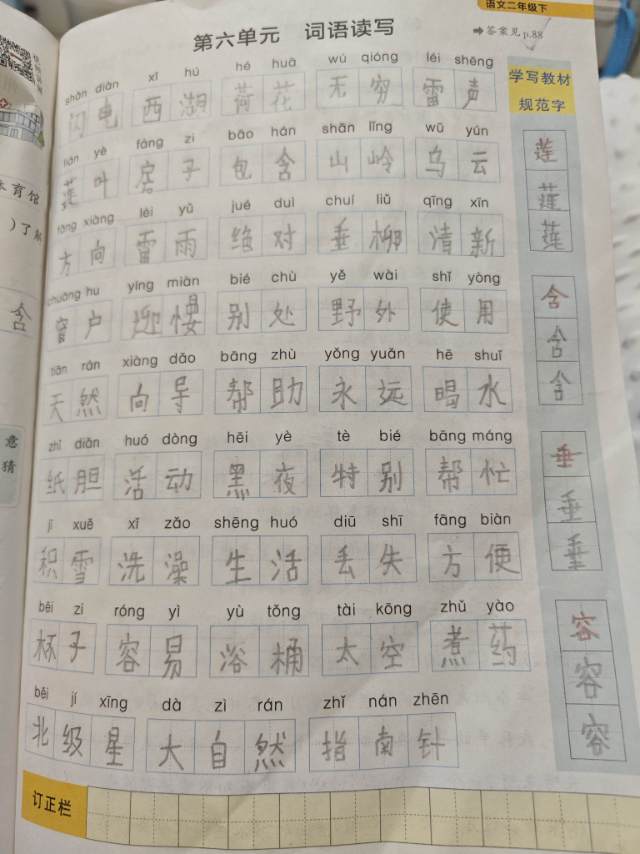 语文二年级下
第六单元 词语读写
➡答案见p.88
shǎn diàn xī hú hé huā wú qióng léi shēng
闪电 西湖 荷花 无穷 雷声
学写教材
规范字
lián yè fáng zi bāo hán shān lǐng wū yún
莲叶 房子 包含 山岭 乌云
莲
莲
莲
fāng xiàng léi yǔ jué duì chuí liǔ qīng xīn
方向 雷雨 绝对 垂柳 清新
chuāng hu yíng miàn bié chù yě wài shǐ yòng
窗户 迎 别处 野外 使用
含
含
含
tiān rán xiàng dǎo bāng zhù yǒng yuǎn hē shuǐ
天然 向导 帮助 永远 喝水
zhǐ diǎn huó dòng hēi yè tè bié bāng máng
纸胆 活动 黑夜 特别 帮忙
垂
垂
垂
jī xuě xǐ zǎo shēng huó diū shī fāng biàn
积雪 洗澡 生活 丢失 方便
bēi zi róng yì yù tǒng tài kōng zhǔ yào
杯子 容易 浴桶 太空 煮药
容
容
容
běi jí xīng dà zì rán zhǐ nán zhēn
北级星 大自然 指南针
订正栏
体育馆
)了解
含
意
猜